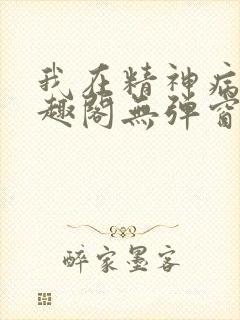 我在精神病
趣阁無弹窗
醉家墨客